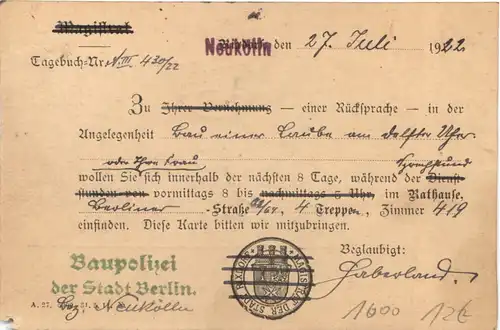 Magistrat
Neukölln den 27. Juli 1922
Tagebuch-Nr. VIII 430/22
Zu Ihrer Vernehmung — einer Rücksprache — in der
Angelegenheit Bau einer Laube am Ufer
oder Ihre Frau Sprechstund
wollen Sie sich innerhalb der nächsten 8 Tage, während der Dienst-
stunden von vormittags 8 bis nachmittags 5 Uhr, im Rathause,
Berliner -Straße 62/64, 4 Treppen, Zimmer 419
einfinden. Diese Karte bitten wir mitzubringen.
Baupolizei
der Stadt Berlin.
Beglaubigt:
Haberland
MAGISTRAT DER STADT BERLIN
A. 27. Bez. Neukölln
1600 12€